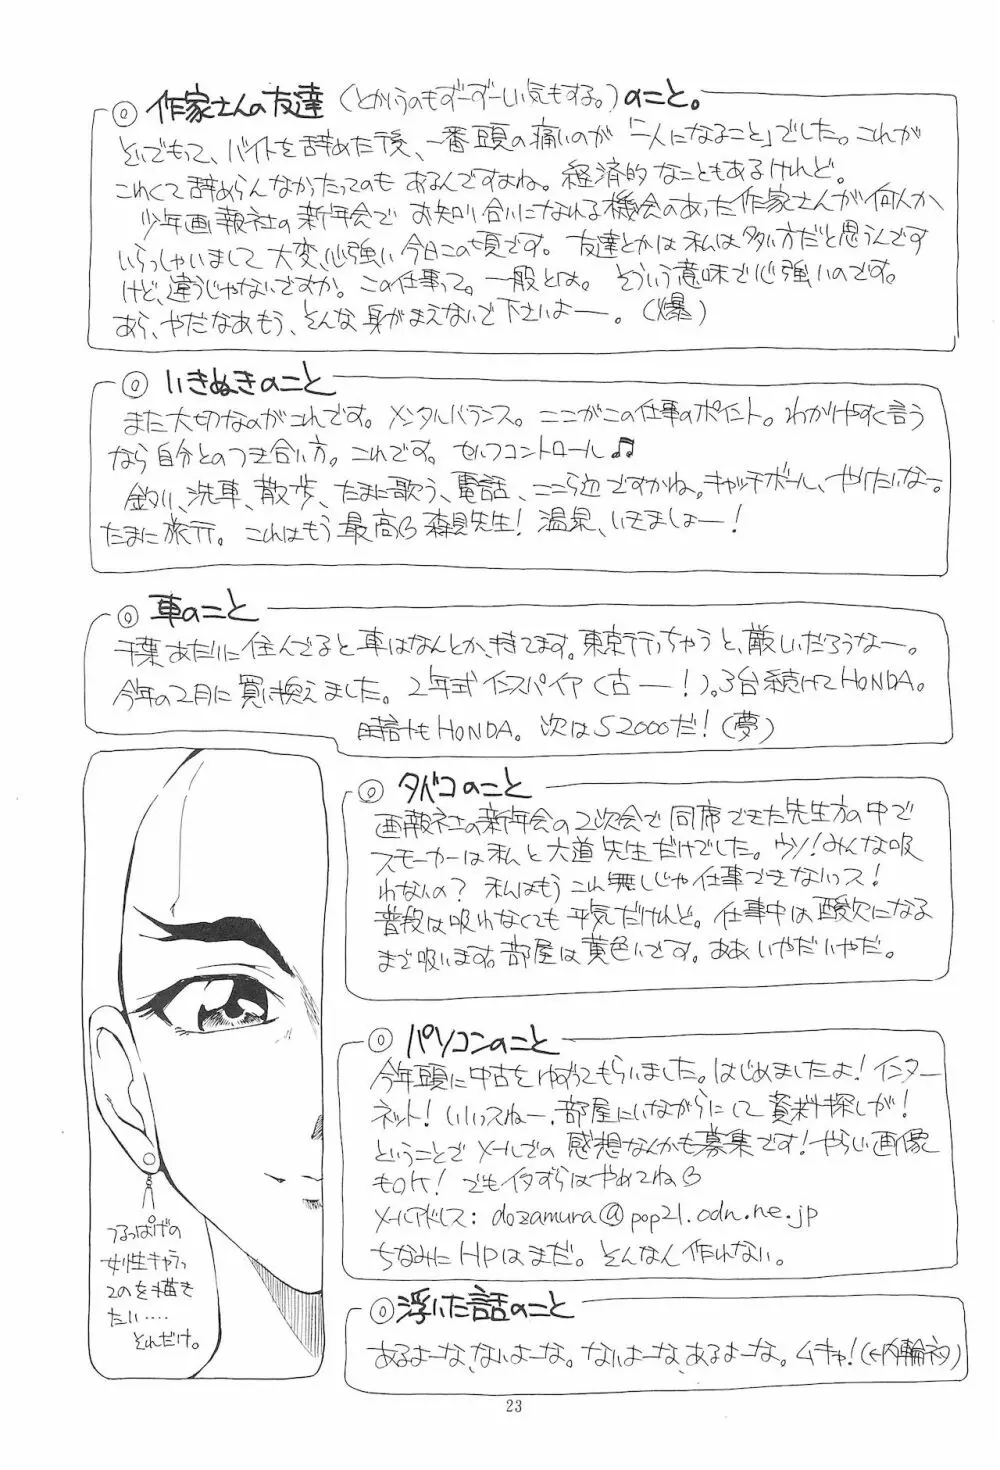 ◎作家さんの友達（とかいうのもずーずーしい気もする。）のこと。
そいでもって、バイトを辞めた後、一番頭の痛いのが「一人になること」でした。これが
これくて辞めらんなかったってのもあるんですよね。経済的なこともあるけれど。
少年画報社の新年会でお知り合いになれる機会のあった作家さんが何人か
いらっしゃいまして大変、心強い今日この頃です。友達とかは私は多い方だと思うんです
けど、違うじゃないですか。この仕事って。一般とは。そういう意味で心強いのです。
あら、やだなあもう、そんな身がまえないで下さいよー。（爆）
◎いきぬきのこと
また大切なのがこれです。メンタルバランス。ここがこの仕事のポイント。わかりやすく言う
なら自分とのつき合い方。これです。セルフコントロール♫
釣り、洗車、散歩、たまに歌う、電話、ここら辺ですかね。キャッチボール、やりたいなー。
たまに旅行。これはもう最高 森見先生！温泉、いきましょー！
◎車のこと
千葉あたりに住んでると車はなんとか、持てます。東京行っちゃうと、厳しいだろうなー。
今年の2月に買い換えました。2年式インスパイア（古ー！）。3台続けてHONDA。
時計もHONDA。次はS2000だ！（夢）
◎タバコのこと
画報社の新年会の2次会で同席できた先生方の中で
スモーカーは私と大道先生だけでした。ウソ！みんな吸
わないの？私はもうこれ無しじゃ仕事できないっス！
普段は吸わなくても平気だけれど。仕事中は酸欠になる
まで吸います。部屋は黄色いです。ああいやだいやだ。
◎パソコンのこと
今年頭に中古をゆずってもらいました。はじめましたよ！インター
ネット！いいっスねー、部屋にいながらにして資料探しが！
ということでメールでの感想なんかも募集です！やらしい画像
もOK！でもイタずらはやめてね
メールアドレス：dozamura@pop21.odn.ne.jp
ちなみにHPはまだ。そんなん作れない。
つるっぱげの
女性キャラっ
てのを描き
たい……
それだけ。
◎浮いた話のこと
あるよーな、ないよーな。ないよーな、あるよーな。ムキャ！（←内輪ネタ）
23